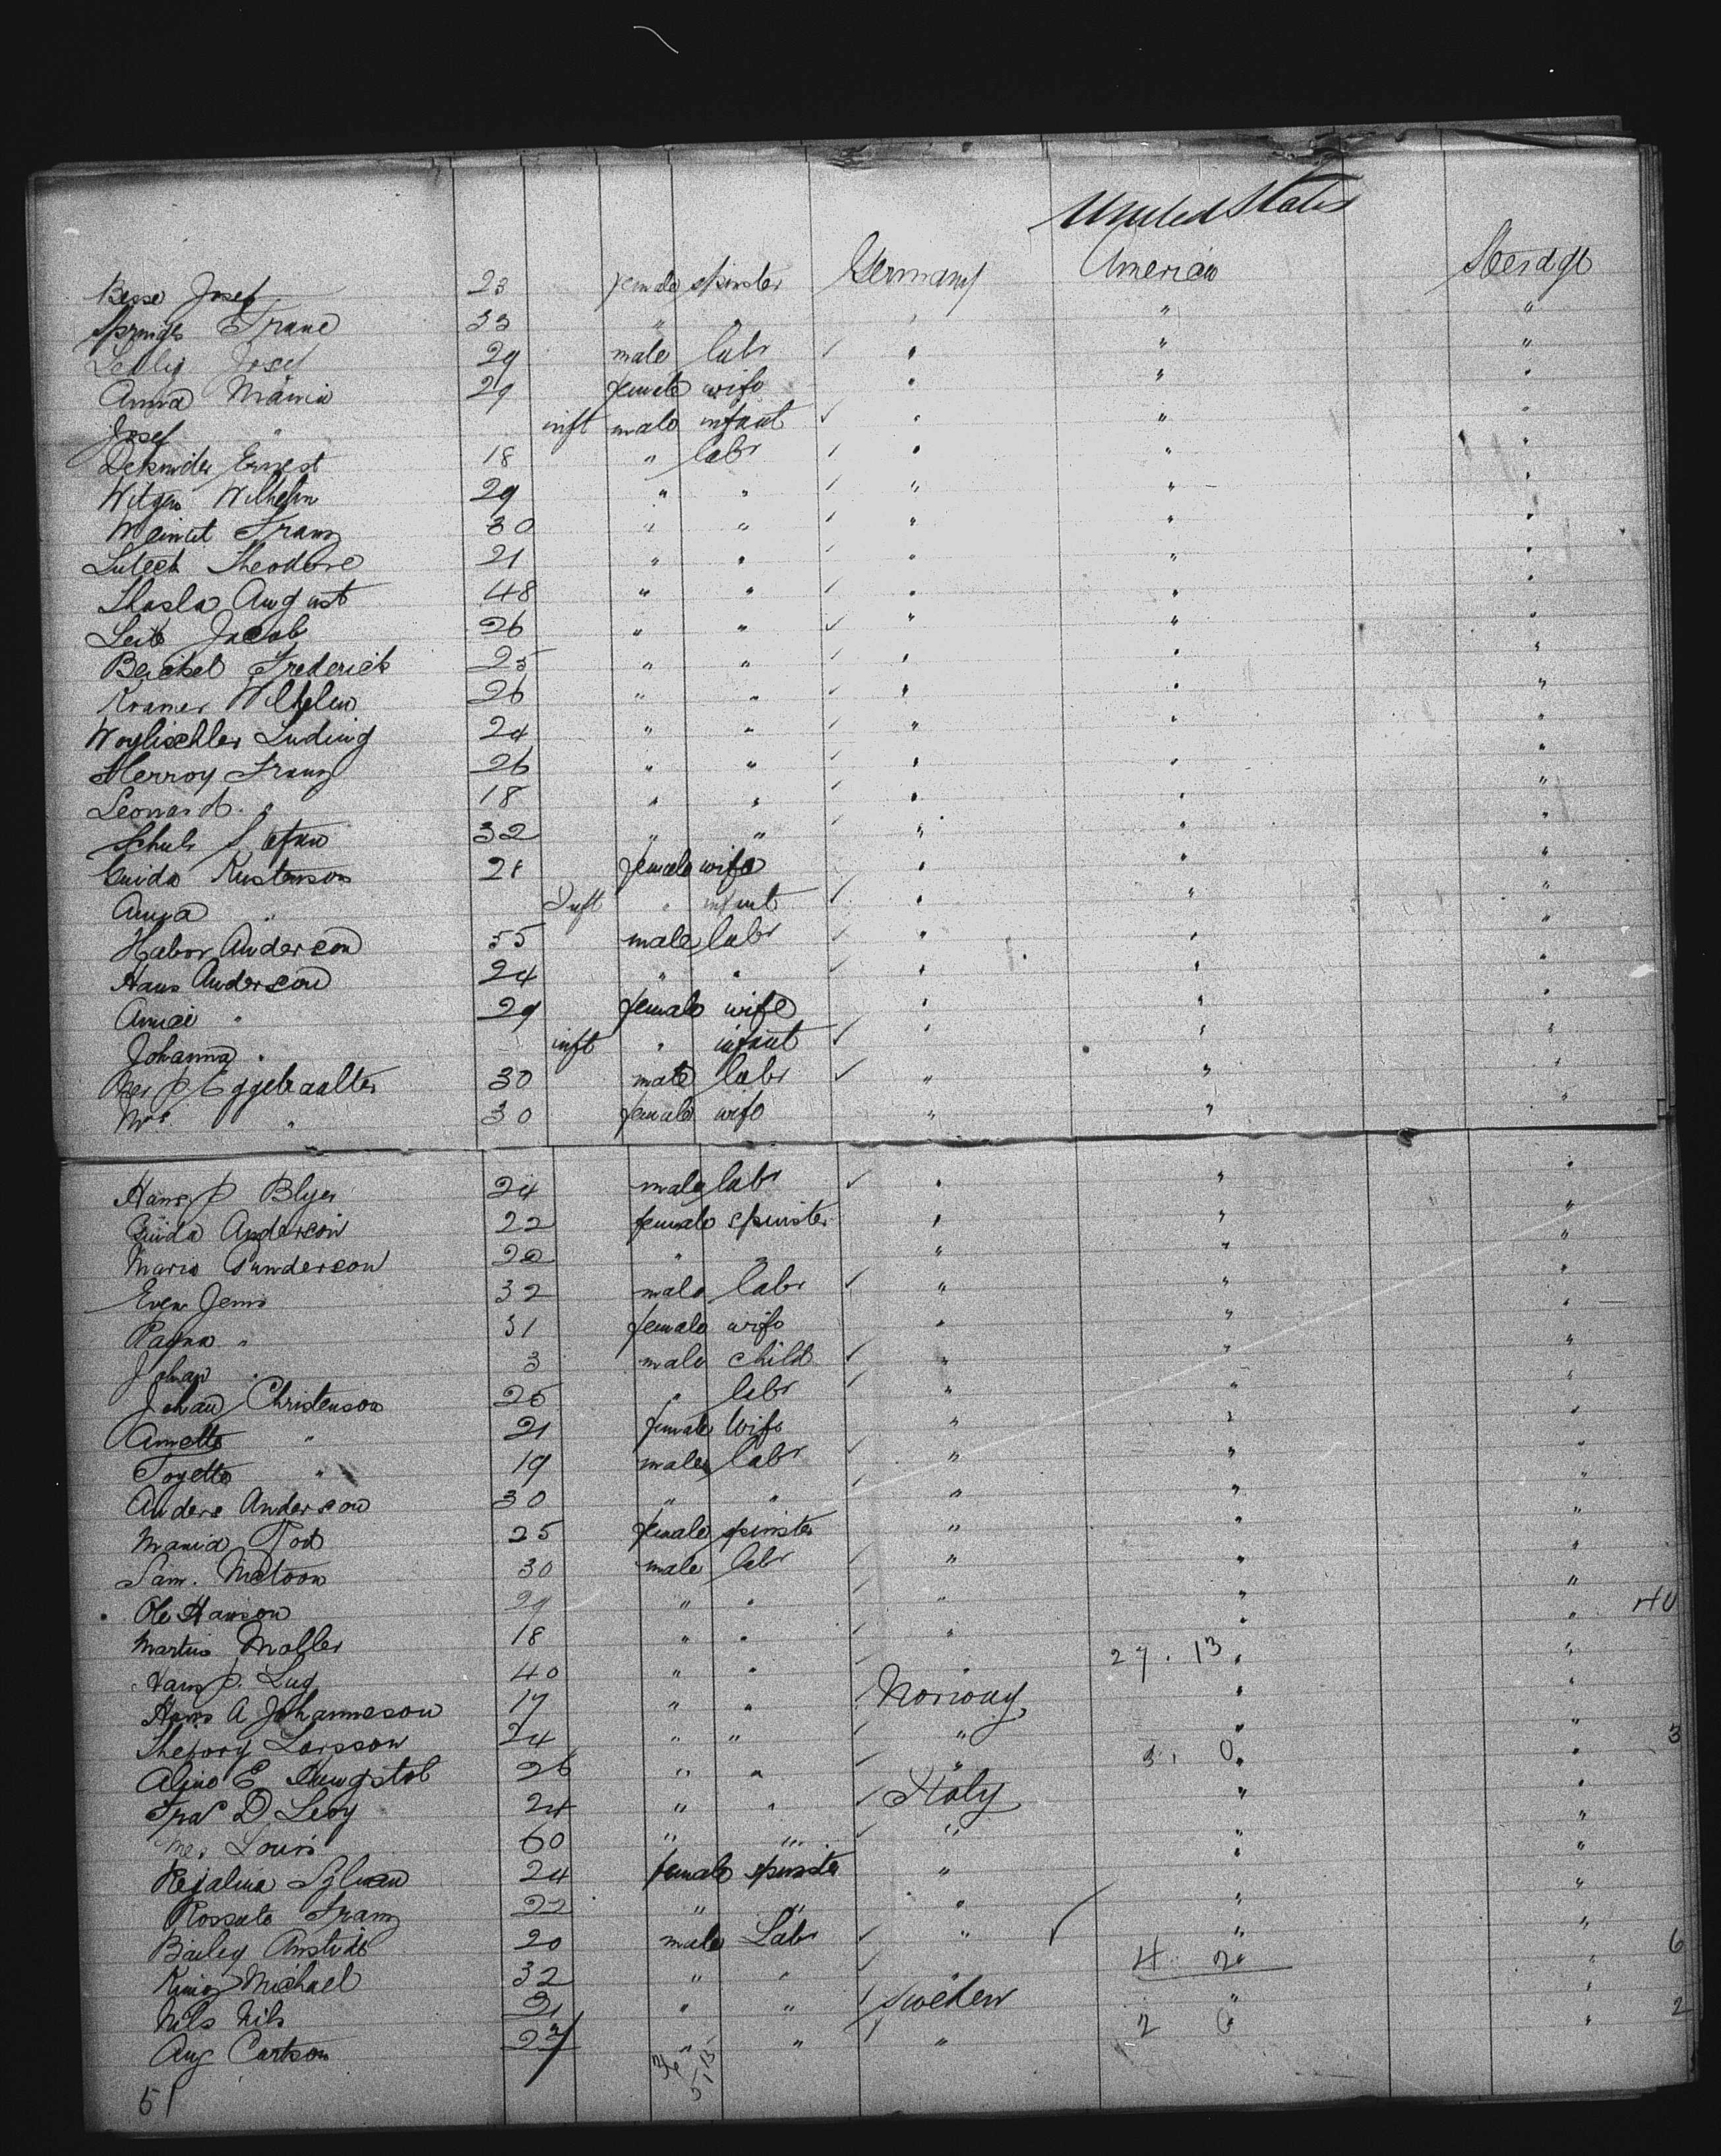 United States
Besse Josef 23 female spinster Germany American Steerdge
Franc 33 " " " " "
Josef 29 male labr ✓ " " "
Anna Maria 29 female wife " " "
Josef " inft male infant ✓ " " "
Ernest 18 " labr ✓ " " "
Witgen Wilhelm 29 " " ✓ " " "
Franz 30 " " ✓ " " "
Luteck Theodore 21 " " ✓ " " "
August 48 " " ✓ " " "
Leib Jacob 26 " " ✓ " " "
Beichel Frederick 25 " " ✓ " " "
Kramer Wilhelm 26 " " ✓ " " "
Woylischler Luding 24 " " ✓ " " "
Herroy Franz 26 " " ✓ " " "
Leonard " 18 " " ✓ " " "
Schuls Stefan 32 " " ✓ " " "
Guida Kustenson 21 female wife " " "
Anna " Inft " infant ✓ " " "
Habor Anderson 55 male labr ✓ " " "
Hans Anderson 24 " " ✓ " " "
Annie " 29 female wife " " "
Johanna " inft " infant ✓ " " "
P Eggebraalter 30 male labr ✓ " " "
Mrs " 30 female wife " " "
Hans P Blyer 24 male labr ✓ " " "
Guida Anderson 22 female spinster " " "
Maria Gunderson 22 " " " " "
Even Jens 32 male labr ✓ " " "
Ragna " 31 female wife " " "
Johan " 3 male child ✓ " " "
Johan Christenson 25 " labr ✓ " " "
Annette " 21 female Wife " " "
Toyette " 19 male labr ✓ " " "
Anders Anderson 30 " " ✓ " " "
Maria Tod 25 female spinster " " "
Sam. Matoon 30 male labr ✓ " " "
Ole Hanson 29 " " ✓ " " " 40
Martin Moller 18 " " ✓ " " "
Hans P. Lug 40 " " ✓ " 27. 13 " "
Hans A Johanneson 17 " " ✓ Norway " "
Larsson 24 " " ✓ " " " 3
E 26 " " ✓ " 3. 0 " "
D Levy 24 " " ✓ Italy " "
Louis 60 " " ✓ " " "
24 female spinster " " "
Rossute Franz 22 " " " " "
Bailey 20 male Labr ✓ " " " 6
King Michael 32 " " ✓ " 4 2 " "
Nils Nils 21 " " ✓ Sweden " " 2
Aug Carlson 27 " " ✓ " 2 0 " "
51